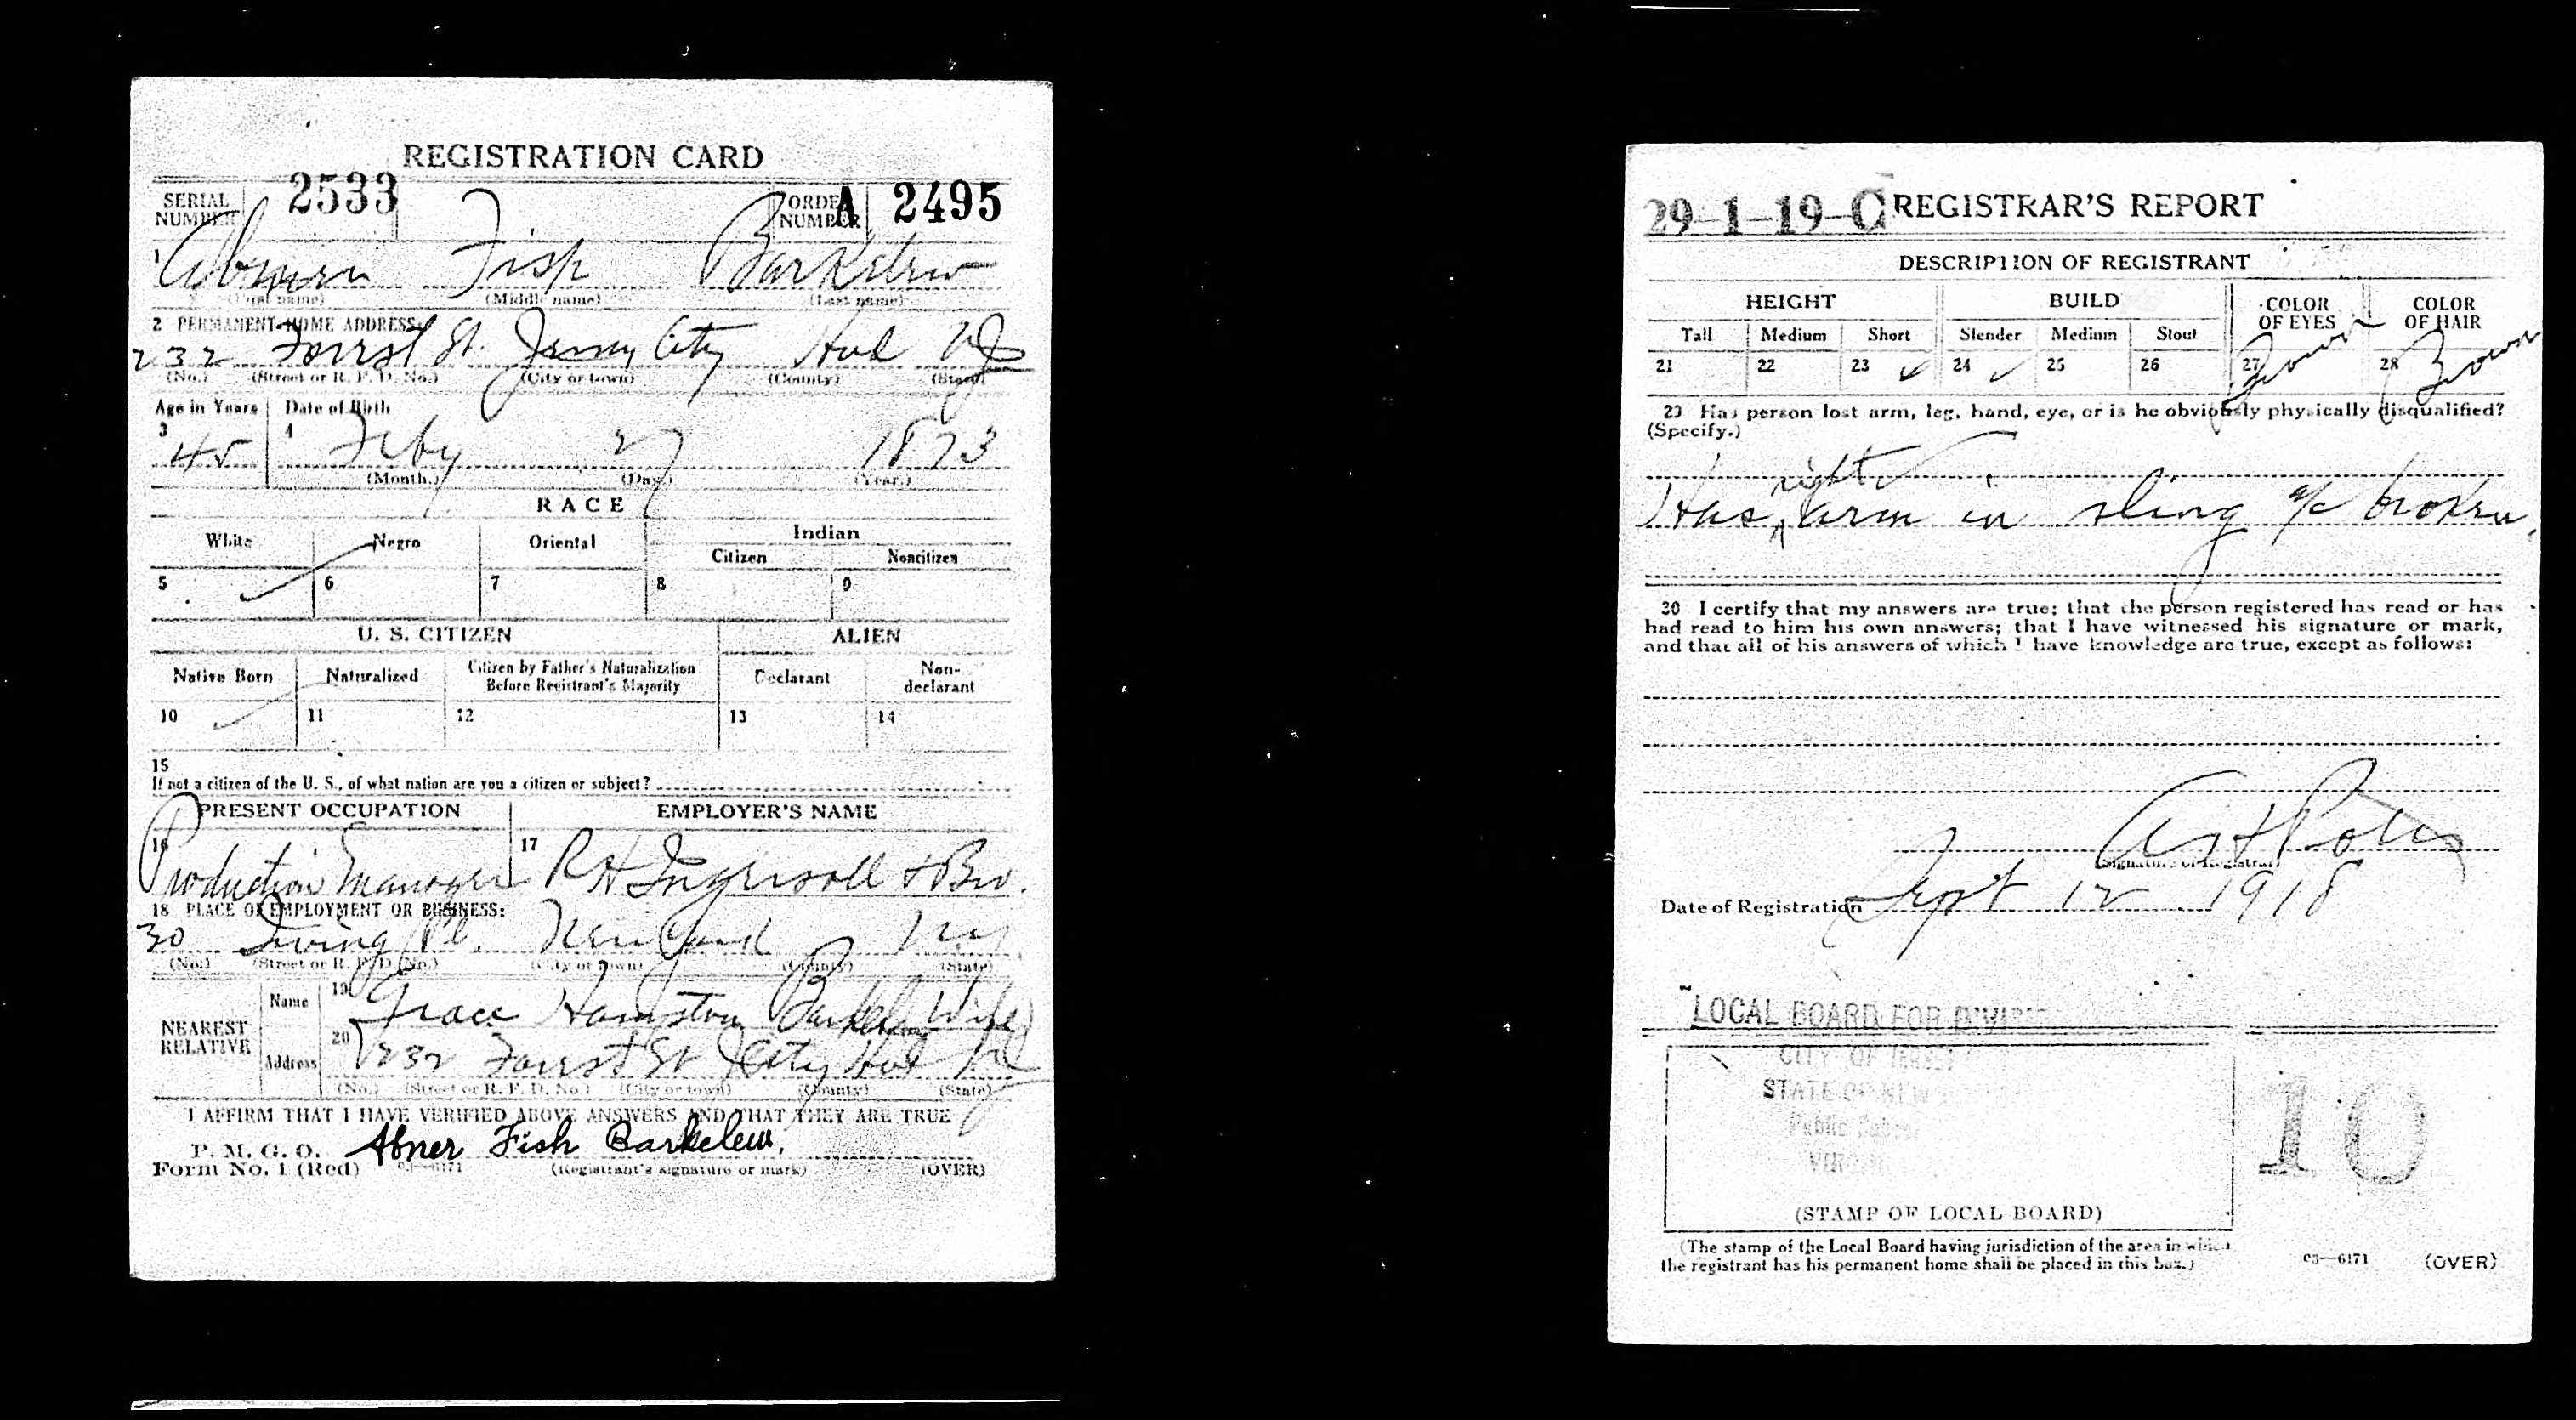 REGISTRATION CARD
SERIAL NUMBER 2533 ORDER NUMBER A 2495
1 Abner Fish Barkelew
(First name) (Middle name) (Last name)
2 PERMANENT HOME ADDRESS:
232 Forrest St. Jersey City Hud NJ
(No.) (Street or R. F. D. No.) (City or town) (County) (State)
Age in Years Date of Birth
3 45 4 Feby 27 1873
(Month.) (Day.) (Year.)
RACE
White Negro Oriental Indian
Citizen Noncitizen
5 ✓ 6 7 8 9
U. S. CITIZEN ALIEN
Native Born Naturalized Citizen by Father's Naturalization Before Registrant's Majority Declarant Non-declarant
10 ✓ 11 12 13 14
15
If not a citizen of the U. S., of what nation are you a citizen or subject?
PRESENT OCCUPATION EMPLOYER'S NAME
16 Production Manager 17 RH Ingersoll & Bro.
18 PLACE OF EMPLOYMENT OR BUSINESS:
30 Irving Pl. New York NY
(No.) (Street or R. F. D. No.) (City or town) (County) (State)
NEAREST RELATIVE
Name 19 Grace Hampton Barkelew (Wife)
Address 20 232 Forrest St JCity Hud NJ
(No.) (Street or R. F. D. No.) (City or town) (County) (State)
I AFFIRM THAT I HAVE VERIFIED ABOVE ANSWERS AND THAT THEY ARE TRUE
P. M. G. O.
Form No. 1 (Red) c3—6171 Abner Fish Barkelew.
(Registrant's signature or mark) (OVER)
29-1-19-C REGISTRAR'S REPORT
DESCRIPTION OF REGISTRANT
HEIGHT BUILD COLOR OF EYES COLOR OF HAIR
Tall Medium Short Slender Medium Stout
21 22 23 ✓ 24 ✓ 25 26 27 Brown 28 Brown
29 Has person lost arm, leg, hand, eye, or is he obviously physically disqualified?
(Specify.)
right
Has arm in sling a/c broken.
30 I certify that my answers are true; that the person registered has read or has
had read to him his own answers; that I have witnessed his signature or mark,
and that all of his answers of which I have knowledge are true, except as follows:
(Signature of Registrar)
Date of Registration Sept 12 1918
LOCAL BOARD FOR DIVISION
CITY OF JERSEY
STATE OF NEW
Public School
10
(STAMP OF LOCAL BOARD)
(The stamp of the Local Board having jurisdiction of the area in which
the registrant has his permanent home shall be placed in this box.)
c3—6171 (OVER)